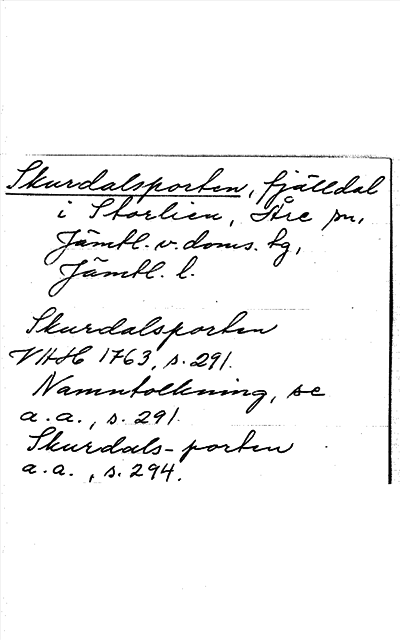 Skurdalsporten, fjälldal
i Storlien, Åre sn,
Jämtl. v. doms. tg,
Jämtl. l.
Skurdalsporten
VHH 1763, s. 291.
Namntolkning, se
a. a., s. 291.
Skurdals-porten
a. a., s. 294.